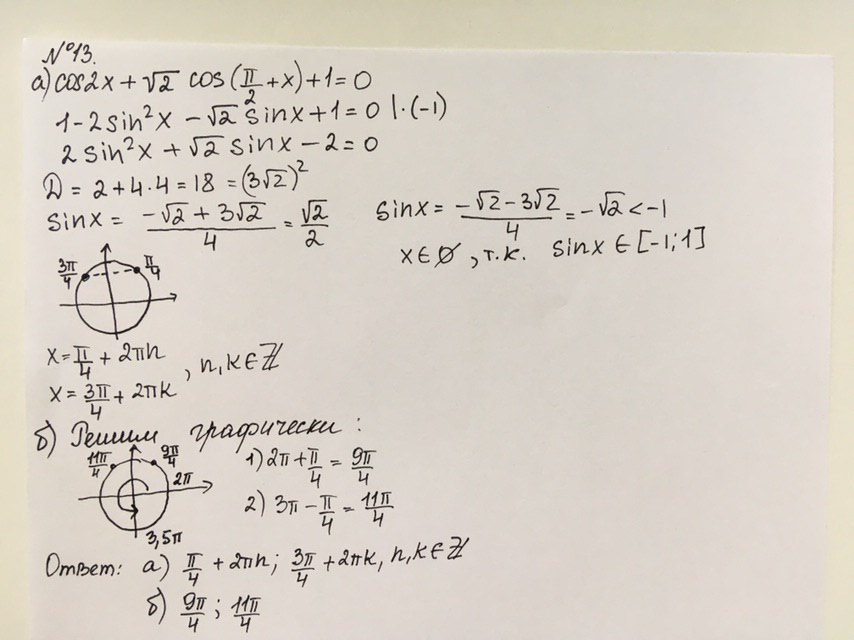 №13.
а) cos2x + √2 cos(π/2 + x) + 1 = 0
1 - 2sin²x - √2 sinx + 1 = 0 |·(-1)
2 sin²x + √2 sinx - 2 = 0
D = 2 + 4·4 = 18 = (3√2)²
sinx = (-√2 + 3√2)/4 = √2/2
sinx = (-√2 - 3√2)/4 = -√2 < -1
x ∈ ∅, т.к. sinx ∈ [-1; 1]
3π/4 π/4
x = π/4 + 2πn
x = 3π/4 + 2πk , n, k ∈ ℤ
б) Решим графически:
11π/4 9π/4
2π
3,5π
1) 2π + π/4 = 9π/4
2) 3π - π/4 = 11π/4
Ответ: а) π/4 + 2πn; 3π/4 + 2πk, n, k ∈ ℤ
б) 9π/4; 11π/4